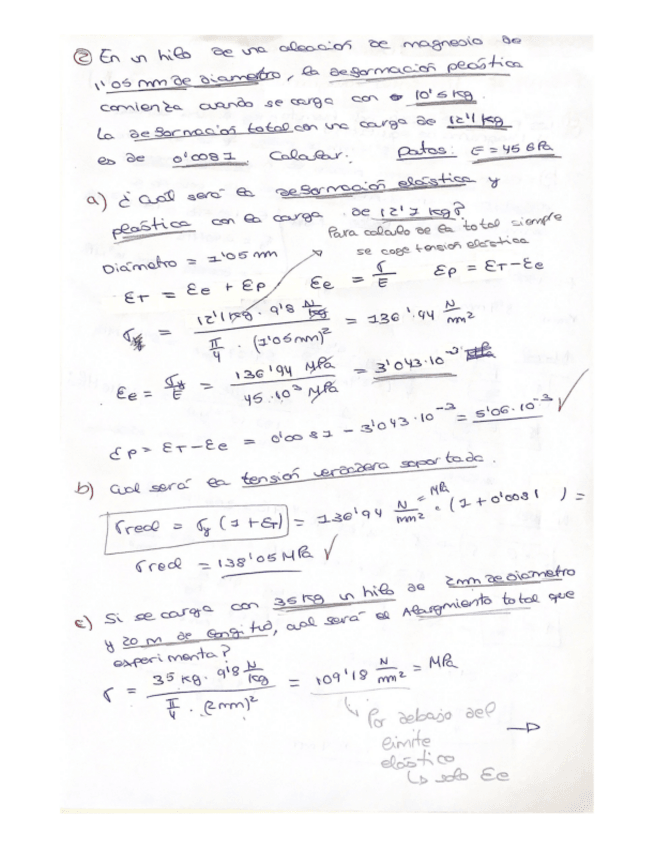 ② En un hilo de una aleación de magnesio de
1'05 mm de diametro, la deformacion plástica
comienza cuando se carga con 10'5 kg.
La deformación total con una carga de 12'1 kg
es de 0'0081. Calcular: Datos: E = 45 GPa
a) ¿Cual será la deformación elástica y
plástica con la carga de 12'1 kg?
Para calculo de la total siempre
se coge tension elástica
Diámetro = 1'05 mm
ET = Ee + Ep Ee = σ/E Ep = ET - Ee
σy = 12'1 kg · 9'8 N/kg / π/4 · (1'05 mm)² = 136'94 N/mm²
Ee = σy/E = 136'94 MPa / 45·10³ MPa = 3'043·10⁻³
Ep = ET - Ee = 0'0081 - 3'043·10⁻³ = 5'06·10⁻³ √
b) Cual será la tensión verdadera soportada.
σreal = σy (1 + ET) = 136'94 N/mm² = MPa · (1 + 0'0081 ) =
σreal = 138'05 MPa √
c) Si se carga con 35 kg un hilo de 2mm de diametro
y 20 m de longitud, cual será el Alargmiento total que
experimenta?
σ = 35 kg · 9'8 N/kg / π/4 · (2mm)² = 109'18 N/mm² = MPa
↳ Por debajo del →
limite
elástico
↳ solo Ee